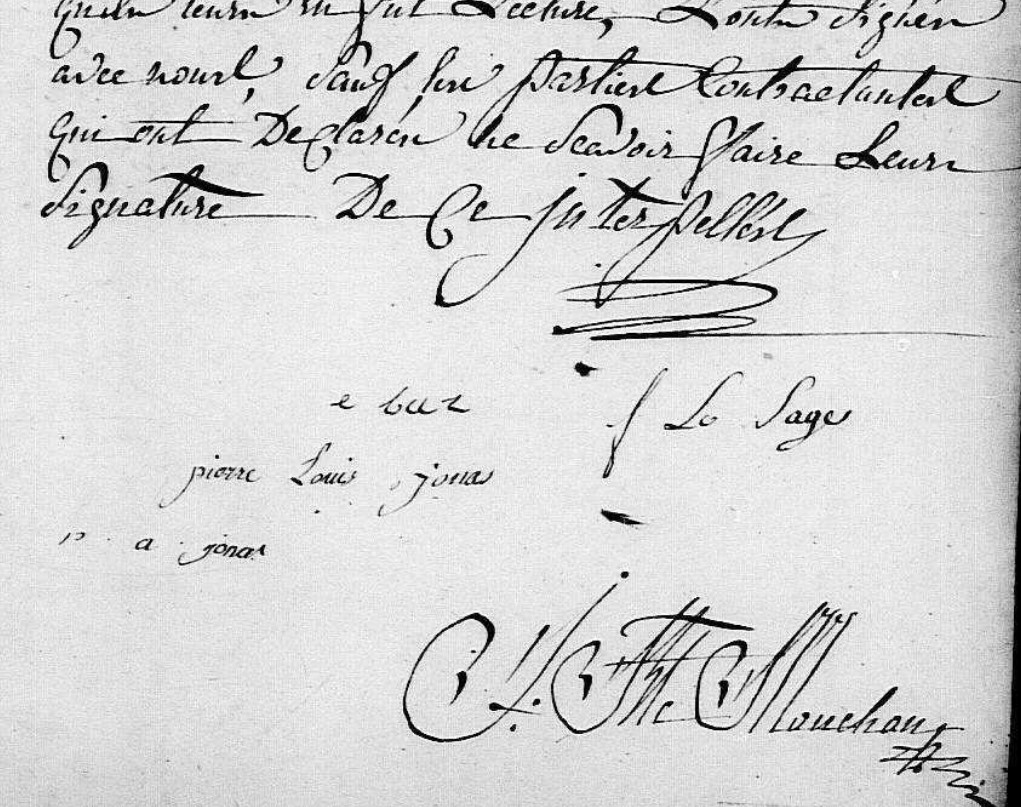 leur en fut Lecture, L'ont Signén
avec nous, Sauf les parties Contractantes
qui ont Declarén ne Scavoir faire Leurn
Signature De Ce jnterpellés
e buz
f Le Sage
pierre Louis jonas
p a jonas
Mouchan